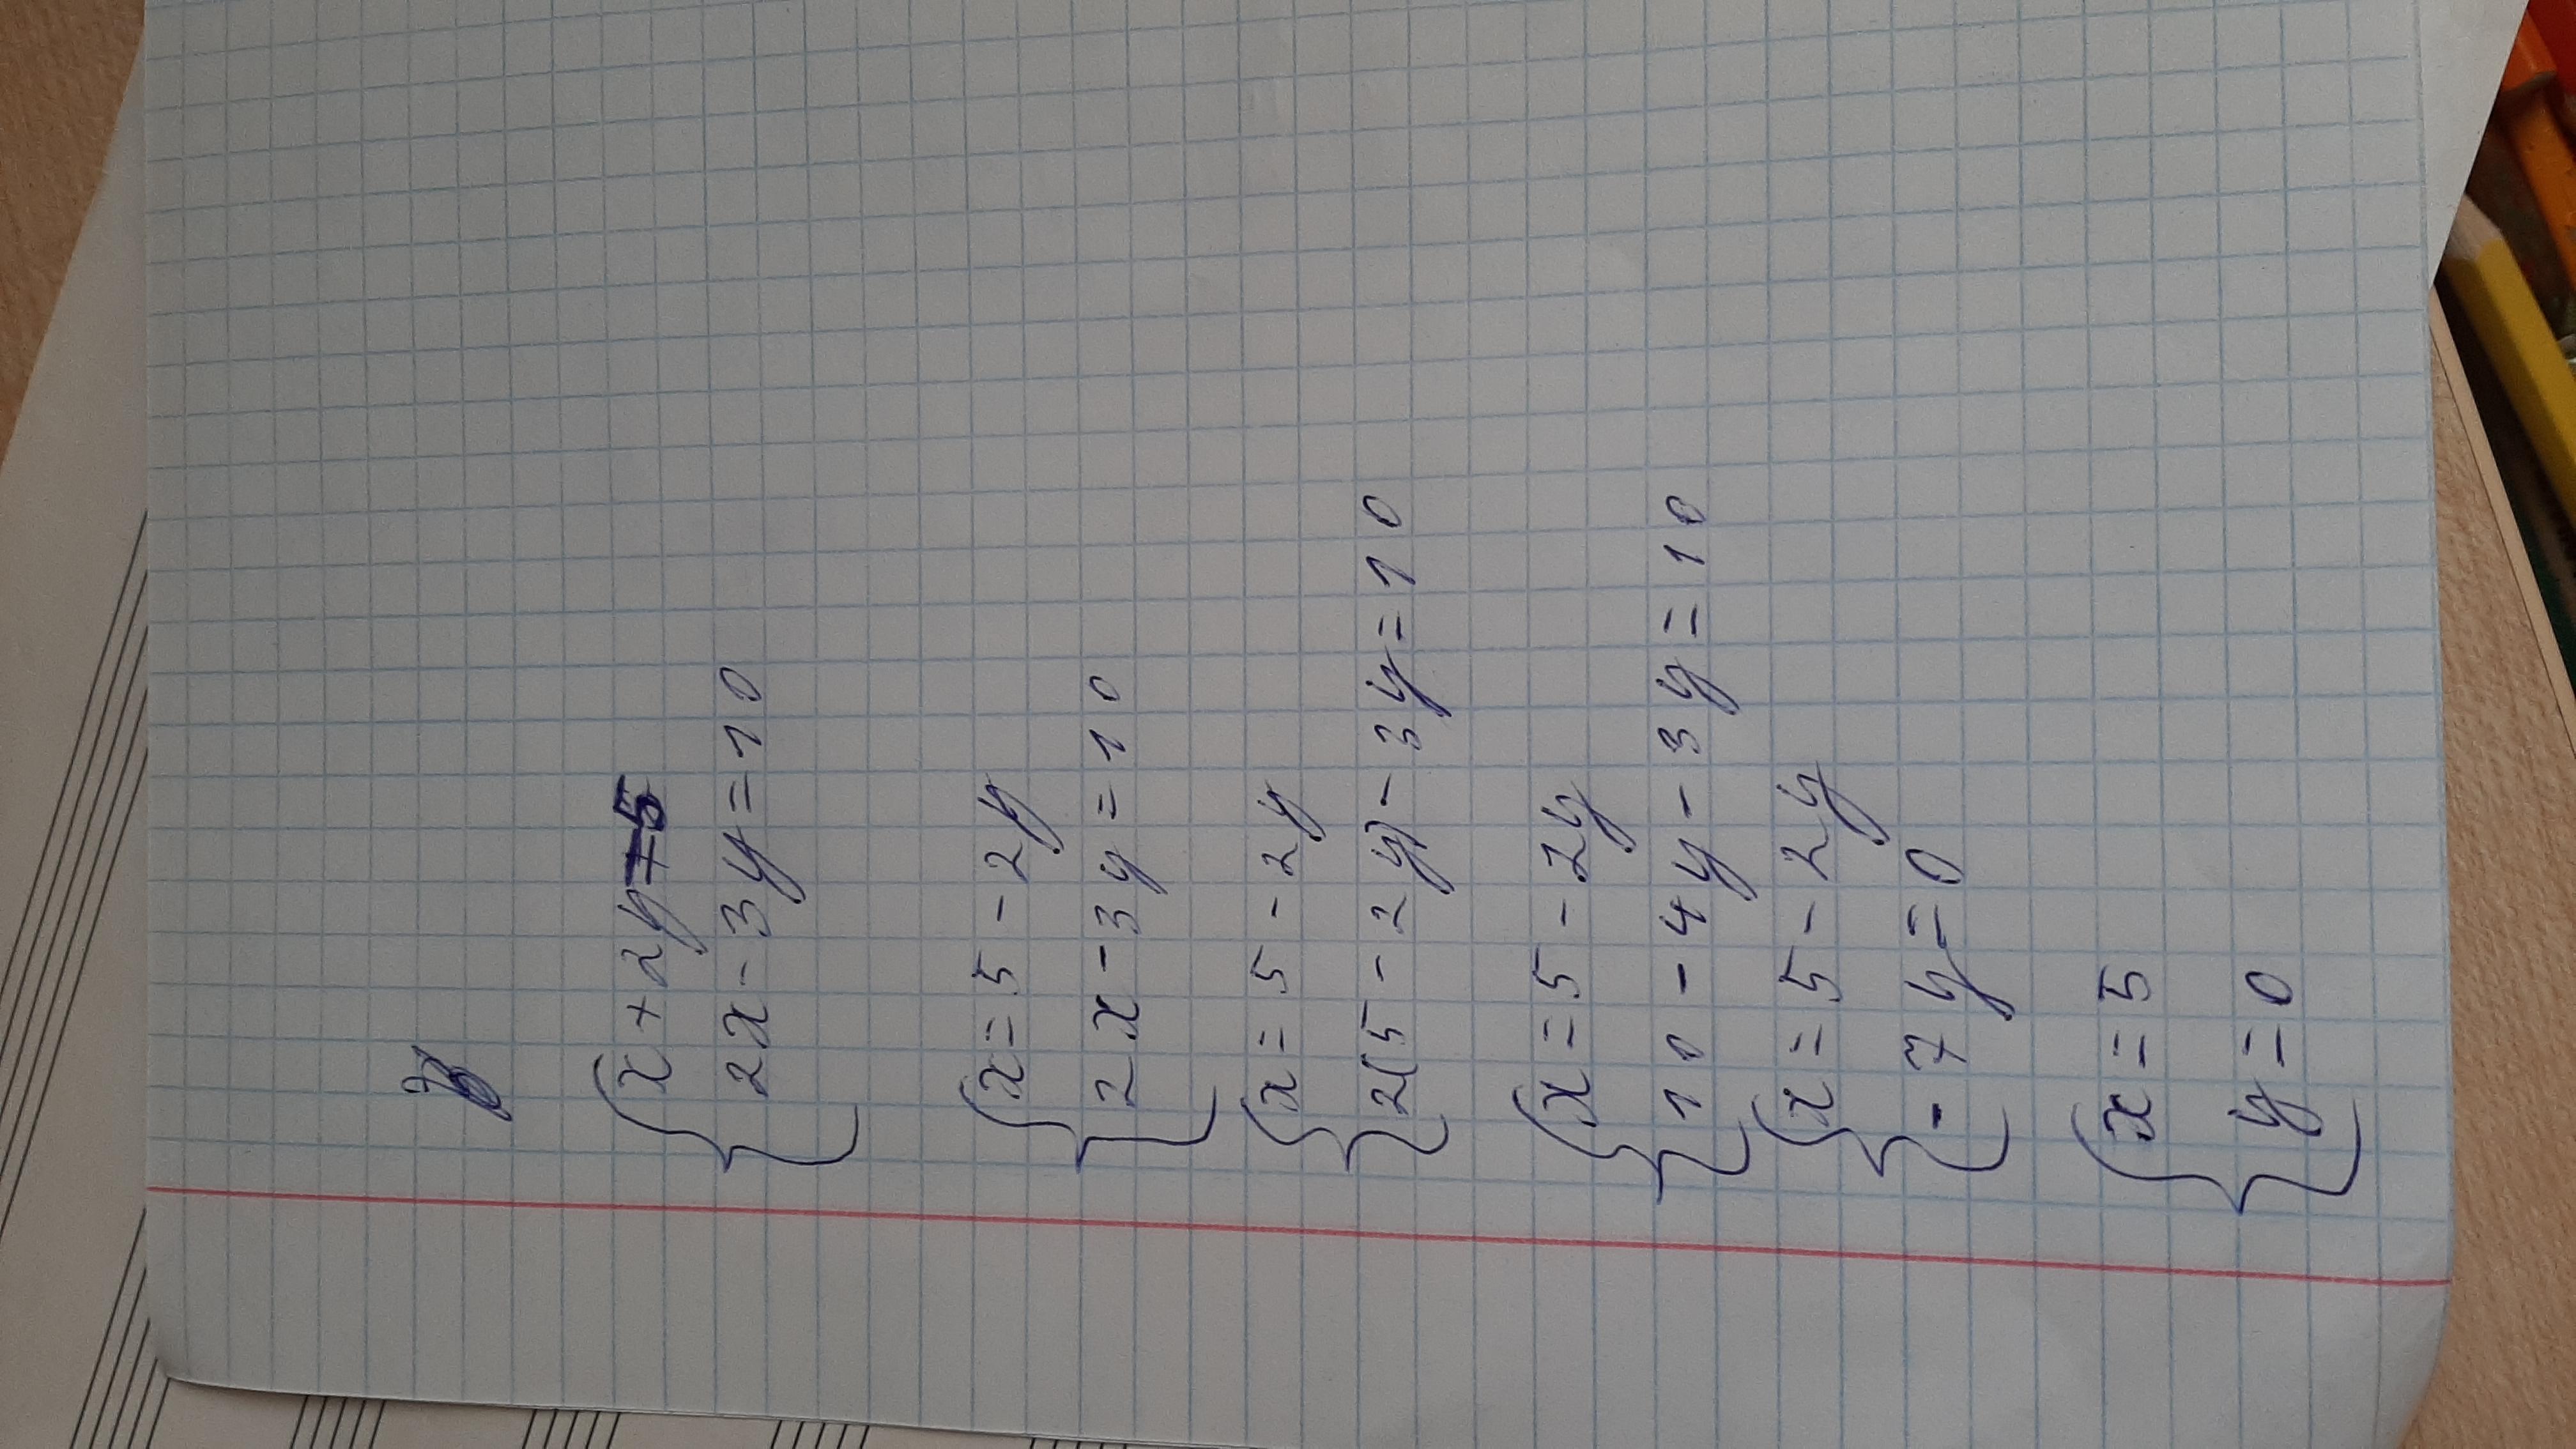 x+2y=5
2x-3y=10
x=5-2y
2x-3y=10
x=5-2y
2(5-2y)-3y=10
x=5-2y
10-4y-3y=10
x=5-2y
-7y=0
x=5
y=0